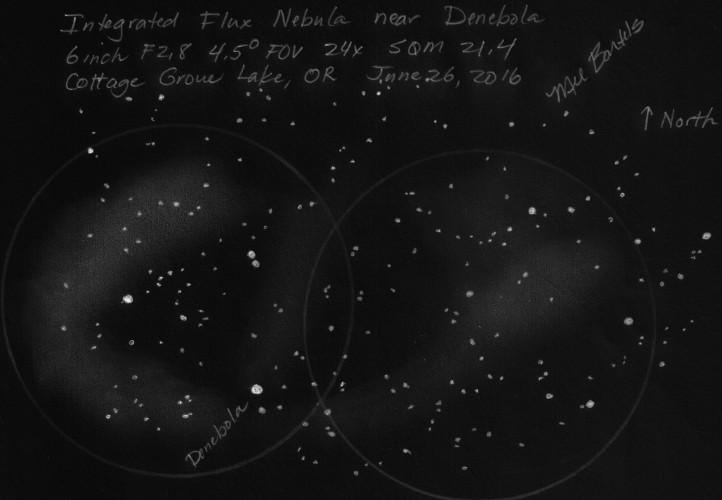 Integrated Flux Nebula near Denebola
6inch F2.8 4.5° FOV 24x SQM 21.4
Cottage Grove Lake, OR June 26, 2016
Mel Bartels
↑ North
Denebola